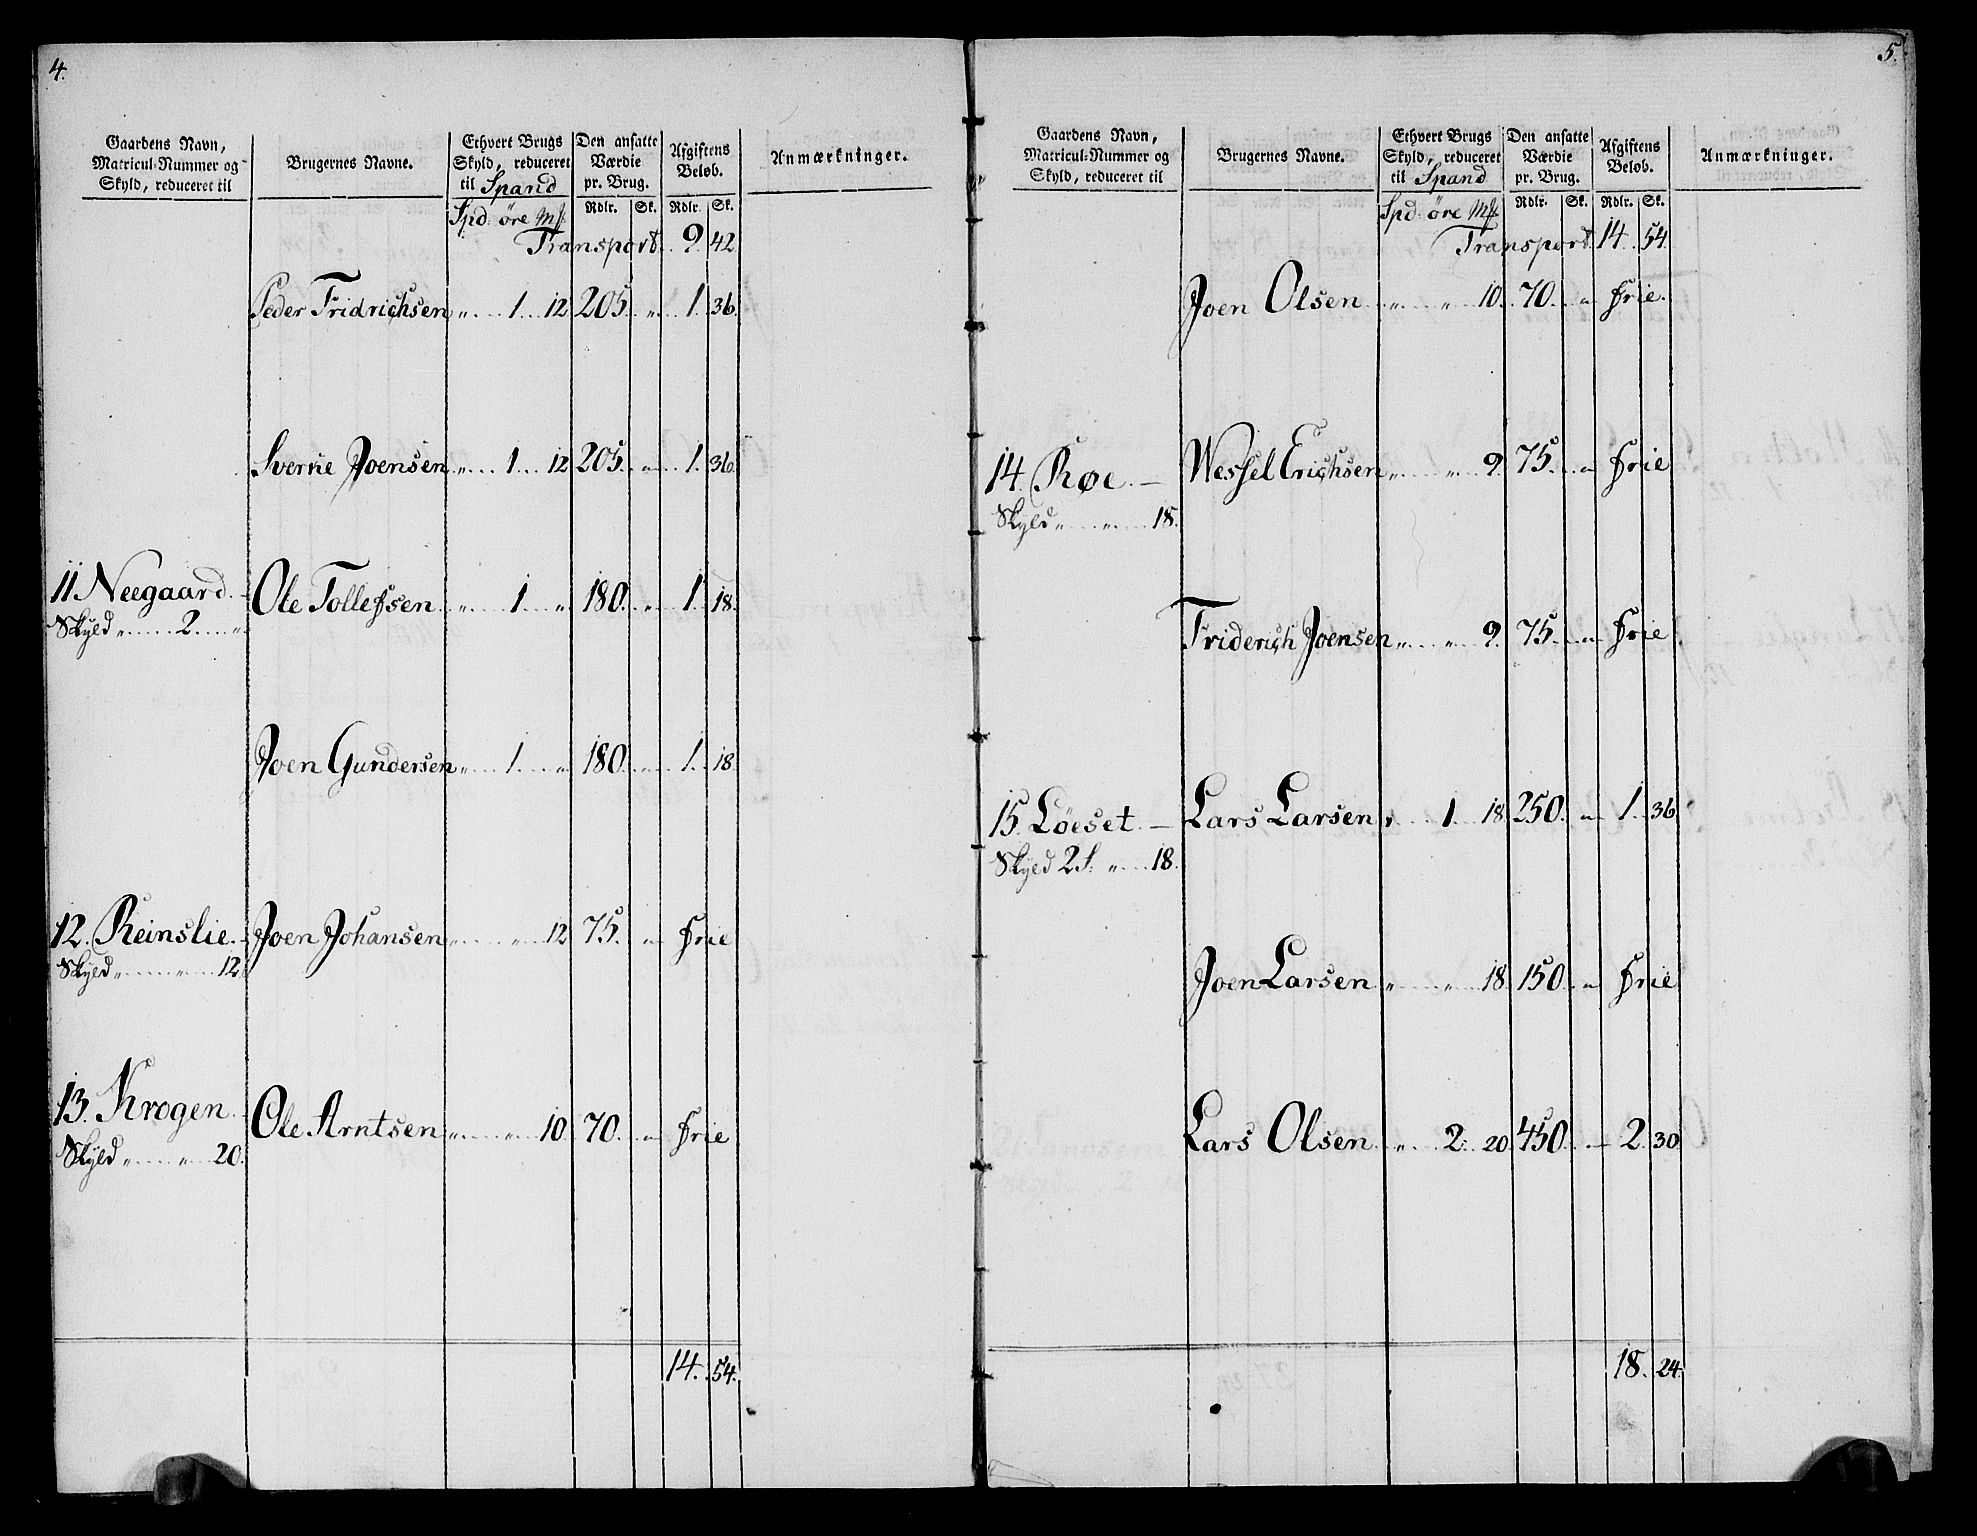 4.
Gaardens Navn, Matricul-Nummer og Skyld, reduceret til
Brugernes Navne.
Ethvert Brugs Skyld, reduceret til Spand
Den ansatte Værdie pr. Brug.
Afgiftens Beløb.
Anmærkninger.
Spd: öre Mk Rdlr. Sk. Rdlr. Sk.
Transport. 9. 42
Peder Fridrichsen „ 1 12 205 „ 1. 36.
Sverrie Joensen „ 1 12 205. „ 1. 36.
11 Neegaard. Ole Tollefsen „ 1 „ 180. „ 1. 18.
Skyld „ 2. „
Joen Gundersen „ 1 „ 180. „ 1. 18.
12. Reinslie. Joen Johansen „ „ 12 75. „ frie
Skyld „ „ 12
13. Krogen Ole Arntsen „ „ 10 70. „ frie
Skyld „ „ 20.
14. 54.
5.
Gaardens Navn, Matricul-Nummer og Skyld, reduceret til
Brugernes Navne.
Ethvert Brugs Skyld, reduceret til Spand
Den ansatte Værdie pr. Brug.
Afgiftens Beløb.
Anmærkninger.
Spd: öre Mk Rdlr. Sk. Rdlr. Sk.
Transport. 14. 54.
Joen Olsen „ „ 10. 70. „ frie.
14. Røe. — Wessel Erichsen „ „ 9. 75. „ frie
Skyld „ „ 18.
Friderich Joensen „ „ 9. 75. „ frie
15. Löeset. — Lars Larsen „ 1. 18. 250. „ 1. 36.
Skyld 2 „ 18.
Joen Larsen „ „ 18. 150. „ frie
Lars Olsen „ 2. 20. 450. — 2. 30.
18. 24.